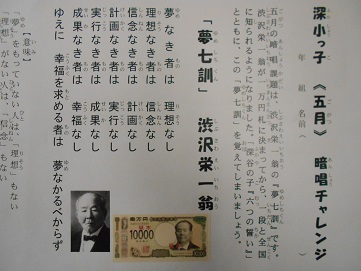 深小っ子 《五月》 暗唱チャレンジ
年 組 名前( )
五月の暗唱課題は、渋沢栄一翁の『夢七訓』です。
渋沢栄一翁が一万円札に決まってから、一段と全国
に知られるようになりました。深谷の子『六つの誓い』
とともに、この『夢七訓』を覚えてしまいましょう。
「夢七訓」 渋沢栄一翁
夢なき者は 理想なし
理想なき者は 信念なし
信念なき者は 計画なし
計画なき者は 実行なし
実行なき者は 成果なし
成果なき者は 幸福なし
ゆえに 幸福を求める者は 夢なかるべからず
10000
【意味】
『夢』をもっていない人は、『理想』もない
『理想』がない人は、『信念』もない